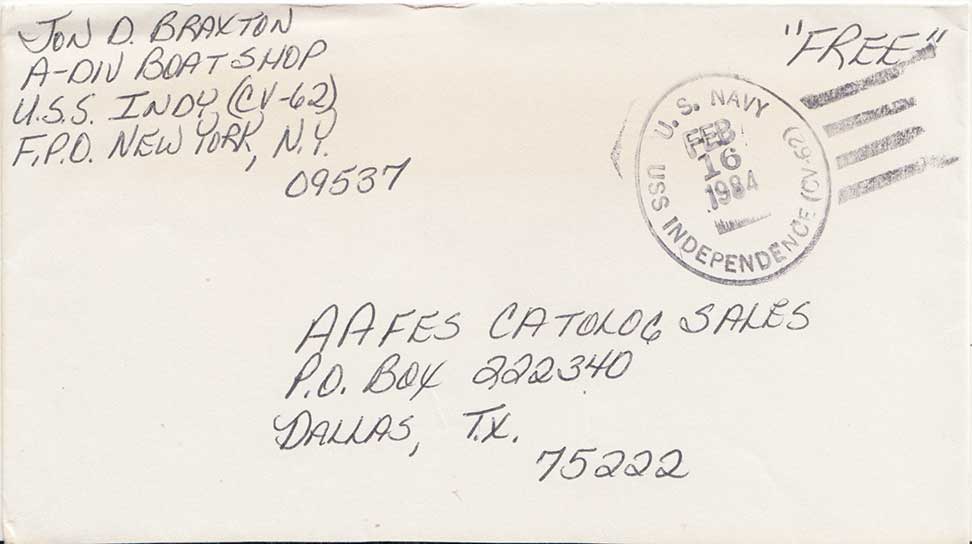 JON D. BRAXTON
A-DIV BOAT SHOP
U.S.S. INDY (CV-62)
F.P.O. NEW YORK, N.Y.
09537
"FREE"
U.S. NAVY
FEB
16
1984
USS INDEPENDENCE (CV-62)
AAFES CATOLOG SALES
P.O. BOX 222340
DALLAS, TX.
75222